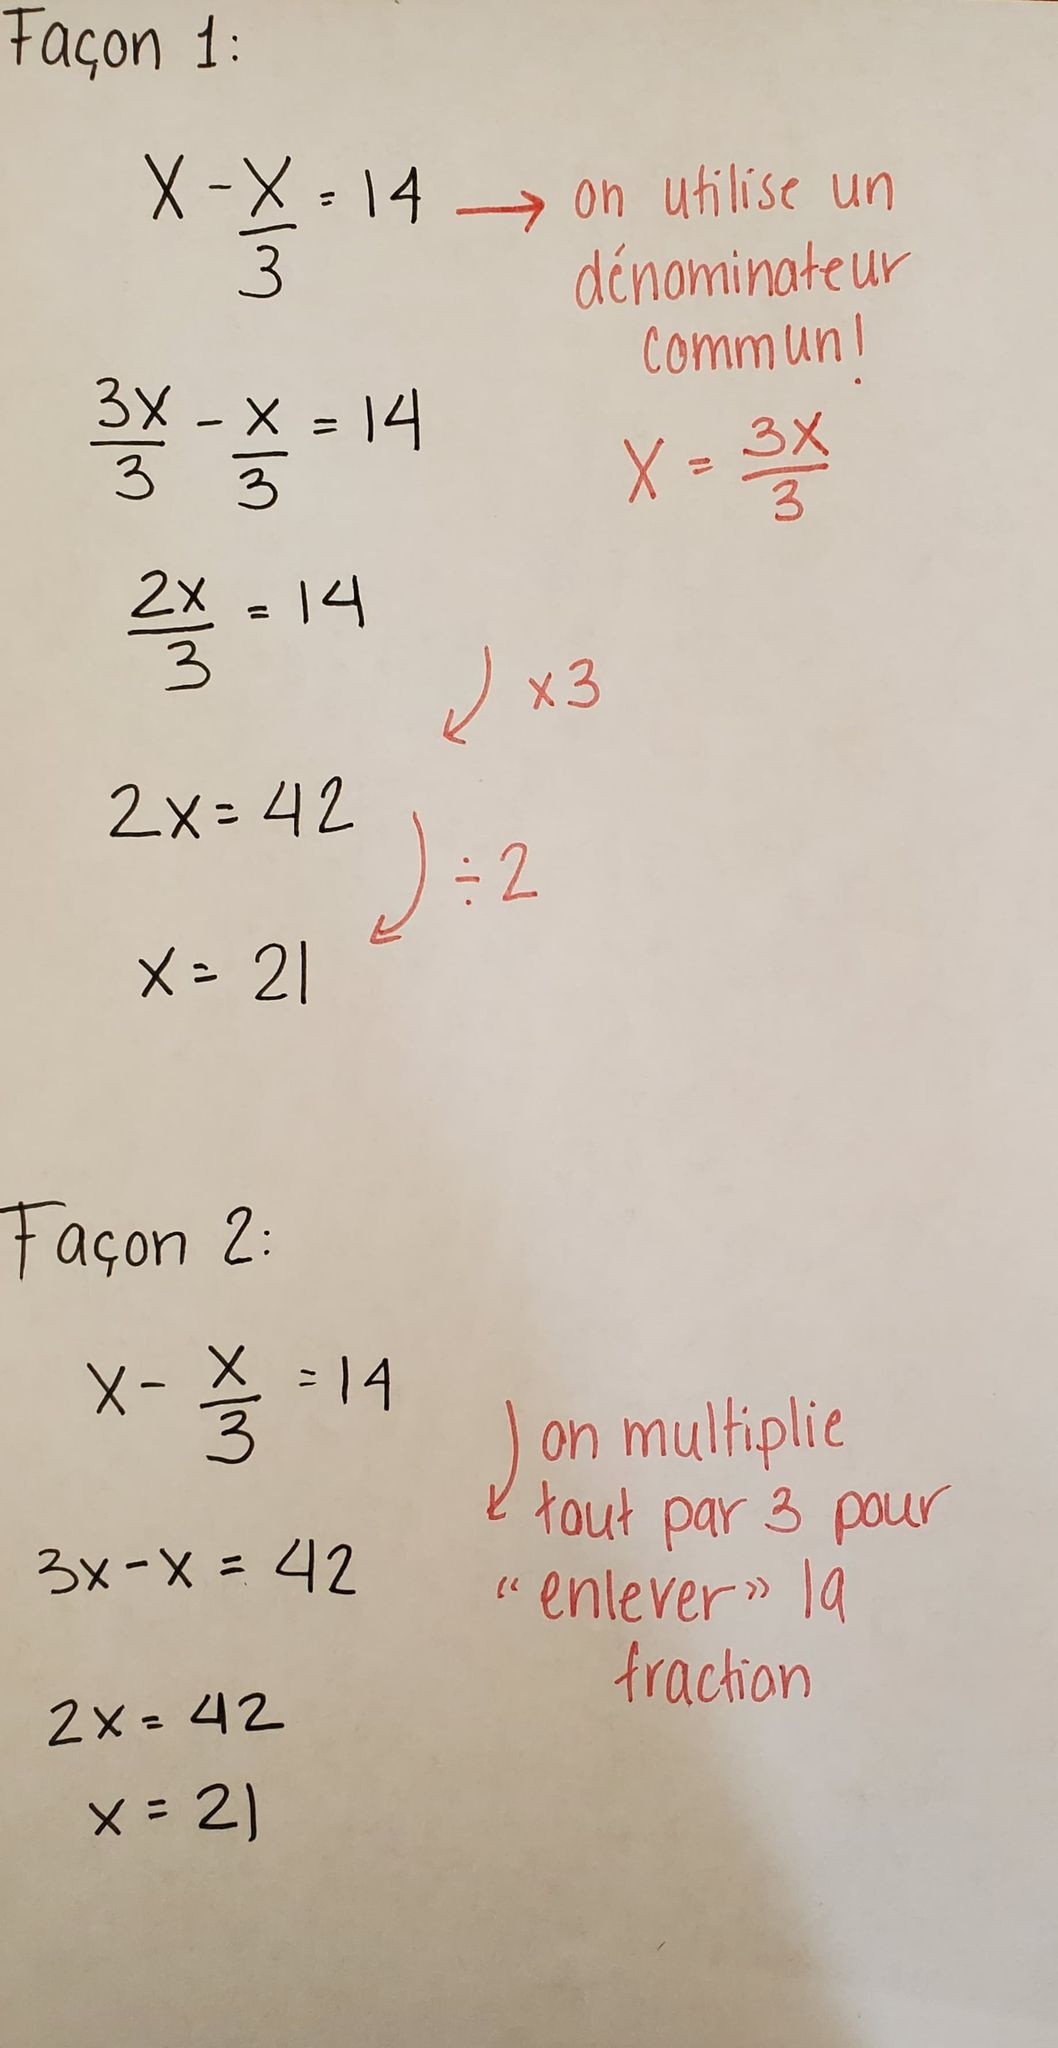 Façon 1:
x - x/3 = 14 → on utilise un
dénominateur
commun!
3x/3 - x/3 = 14
x = 3x/3
2x/3 = 14
x3
2x = 42
÷2
x = 21
Façon 2:
x - x/3 = 14
on multiplie
tout par 3 pour
3x - x = 42
"enlever" la
fraction
2x = 42
x = 21